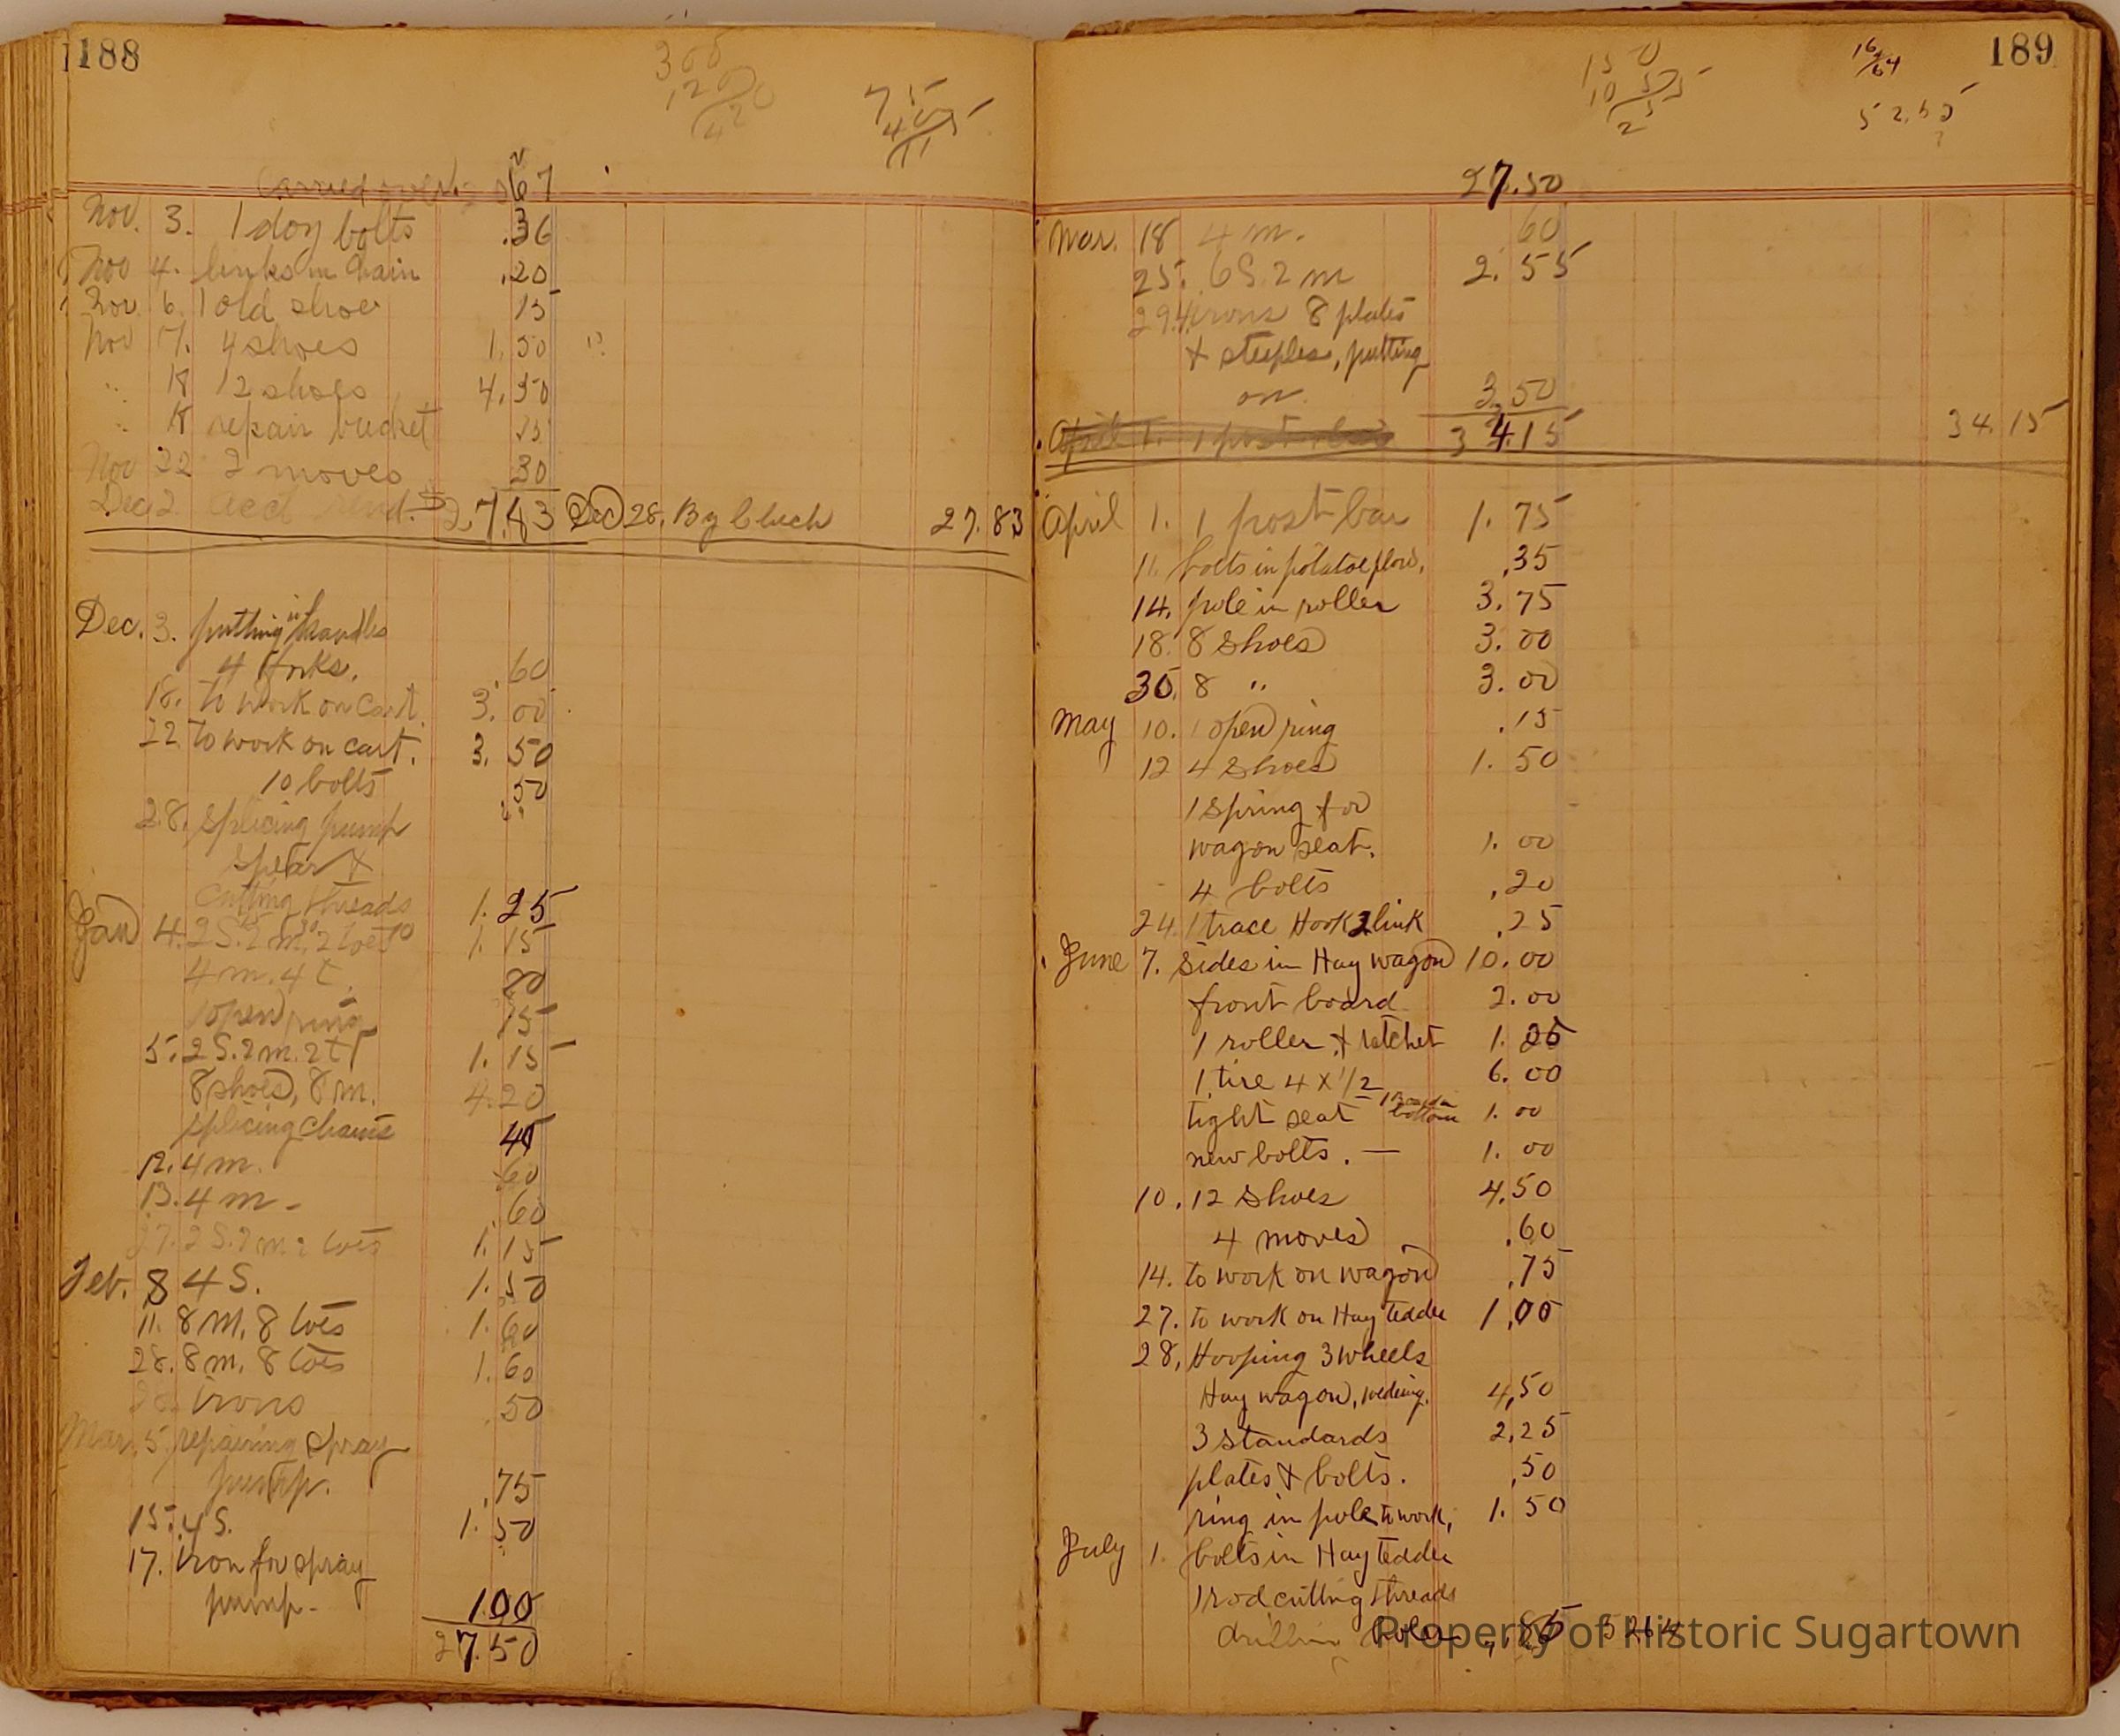 188
300
120
420
75
40
Carried over
67
Nov. 3. 1 doz bolts .36
Nov 4. links in chain .20
Nov. 6. 1 old shoe 15
Nov 17. 4 shoes 1.50
" 18 12 shoes 4.50
" 18 repair bucket 15
Nov 22 2 moves 30
Dec 2. acct rend. $27.83 Dec 28. By Check 27.83
Dec. 3. putting in handles
4 forks. .60
18. to work on cart. 3.00
22. to work on cart. 3.50
10 bolts 50
28. splicing pump
spear &
cutting threads 1.25
Jan 4. 2 S. 2 m. 2 toes 1.15
4 m. 4 t. 80
1 open ring 15
5. 2 S. 2 m. 2 t 1.15
8 shoes, 8 m. 4.20
splicing chains 45
12. 4 m. 60
13. 4 m - .60
27. 2 S. 2 m 2 toes 1.15
Feb. 8 4 S. 1.50
11. 8 m, 8 toes 1.60
28. 8 m, 8 toes 1.60
irons 50
Mar. 5. repairing spray
pump. .75
15. 4 S. 1.50
17. iron for spray
pump - 1.00
27.50
189
150
10
16/64
52.65
27.50
Mar. 18 4 m. 60
25. 6 S. 2 m 2.55
29. 4 irons 8 plates
& steeples, putting
on 3.50
April 1. 1 post bar 34.15 34.15
April 1. 1 post bar 1.75
11. bolts in potatoe plow. .35
14. pole in roller 3.75
18. 8 shoes 3.00
30. 8 " 3.00
May 10. 1 open ring .15
12 4 shoes 1.50
1 spring for
wagon seat. 1.00
4 bolts .20
24. 1 trace Hook 2 link .25
June 7. sides in Hay wagon 10.00
front board 2.00
1 roller & ratchet 1.25
1 tire 4 x 1/2 6.00
tight seat 1 Board in bottom 1.00
new bolts. — 1.00
10. 12 shoes 4.50
4 moves .60
14. to work on wagon .75
27. to work on Hay tedder 1.00
28. Hooping 3 wheels
Hay wagon, welding. 4.50
3 standards 2.25
plates & bolts. .50
ring in pole to work, 1.50
July 1. bolts in Hay tedder
1 rod cutting threads
drilling holes .85 5264
Property of Historic Sugartown